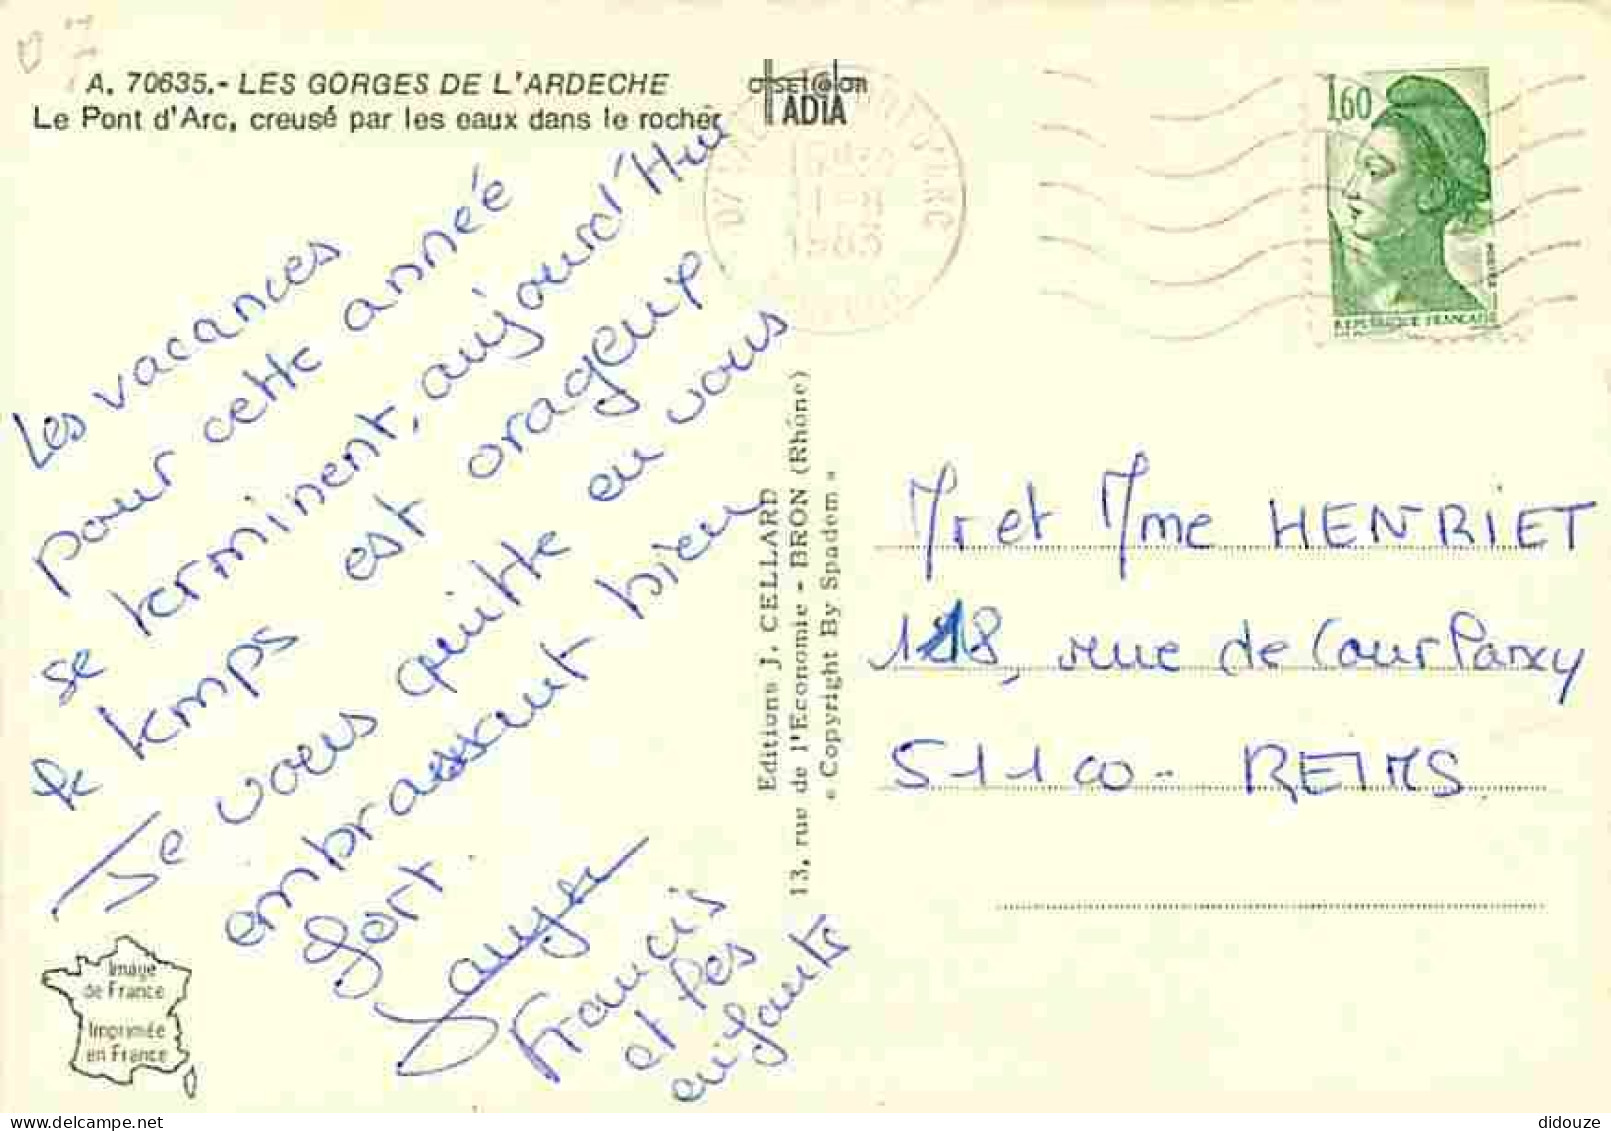 A. 70635.- LES GORGES DE L'ARDECHE
Le Pont d'Arc, creusé par les eaux dans le rocher
offset color
ADIA
1,60
POSTES
REPUBLIQUE FRANÇAISE
Les vacances
pour cette année
se terminent, aujourd'Hui
le temps est orageux
Je vous quitte en vous
embrassant bien
fort.
Francis
et les
enfants
Editions J. CELLARD
13, rue de l'Economie - BRON (Rhône)
« Copyright By Spadem »
Mr et Mme HENRIET
118, rue de Cour Parxy
51100 - REIMS
Image
de France
Imprimée
en France
didouze